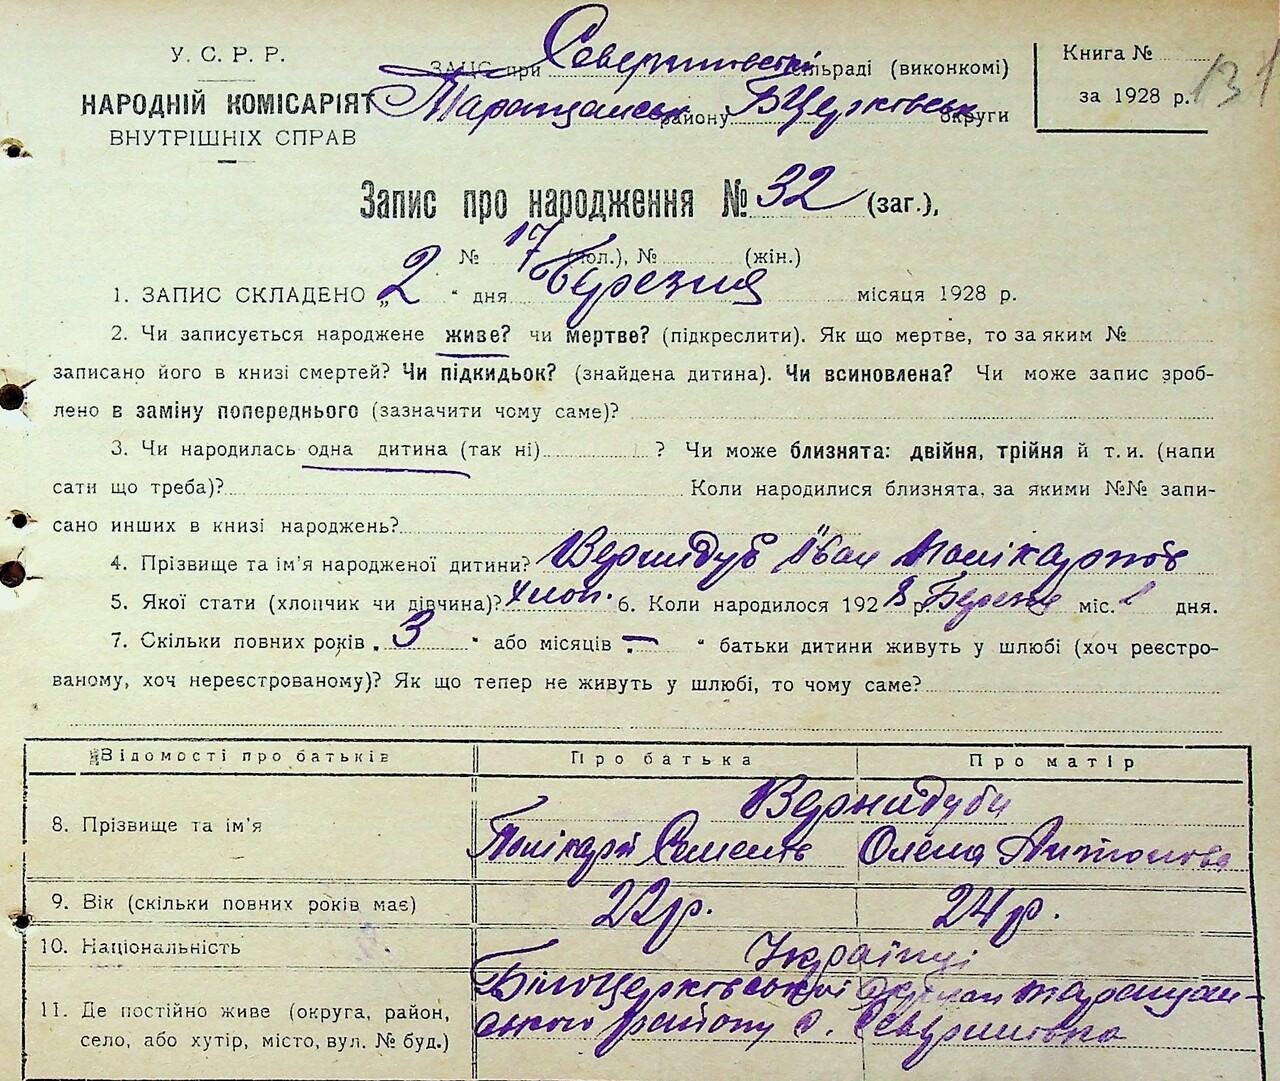 У. С. Р. Р.
НАРОДНІЙ КОМІСАРІЯТ
ВНУТРІШНІХ СПРАВ
ЗАПС при Севериновській сільраді (виконкомі)
Таращанськ району БЦерковськ округи
Книга №
за 1928 р.
131
Запис про народження № 32 (заг.),
№ 17 (чол.), № (жін.)
1. ЗАПИС СКЛАДЕНО „2" дня Березня місяця 1928 р.
2. Чи записується народжене живе? чи мертве? (підкреслити). Як що мертве, то за яким №
записано його в книзі смертей? Чи підкидьок? (знайдена дитина). Чи всиновлена? Чи може запис зроб-
лено в заміну попереднього (зазначити чому саме)?
3. Чи народилась одна дитина (так ні) ? Чи може близнята: двійня, трійня й т. и. (напи
сати що треба)? Коли народилися близнята, за якими №№ запи-
сано инших в книзі народжень?
4. Прізвище та ім'я народженої дитини? Вернидуб Іван Полікарпов
5. Якої стати (хлопчик чи дівчина)? Хлоп. 6. Коли народилося 1928 р. Березня міс. 1 дня.
7. Скільки повних років „3" або місяців „—" батьки дитини живуть у шлюбі (хоч реєстро-
ваному, хоч нереєстрованому)? Як що тепер не живуть у шлюбі, то чому саме?
Відомості про батьків Про батька Про матір
8. Прізвище та ім'я Вернидуби
Полікарп Семенів Олена Антонова
9. Вік (скільки повних років має) 22 р. 24 р.
10. Національність Українці
11. Де постійно живе (округа, район,
село, або хутір, місто, вул. № буд.)
Білоцерковської округи Таращан-
ського району с. Северинівка